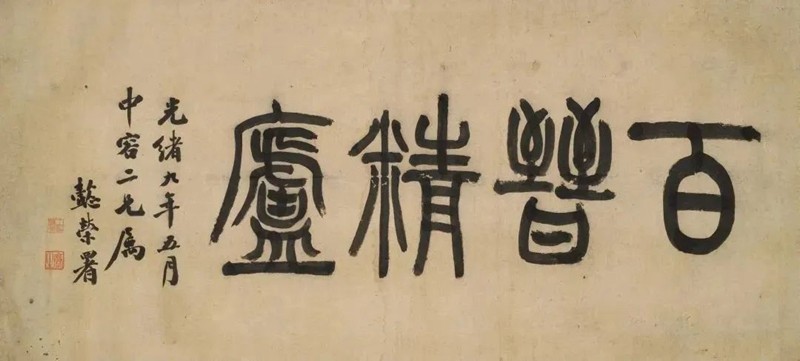 百晉精廬
光緒九年五月
中容二兄属
懿榮署